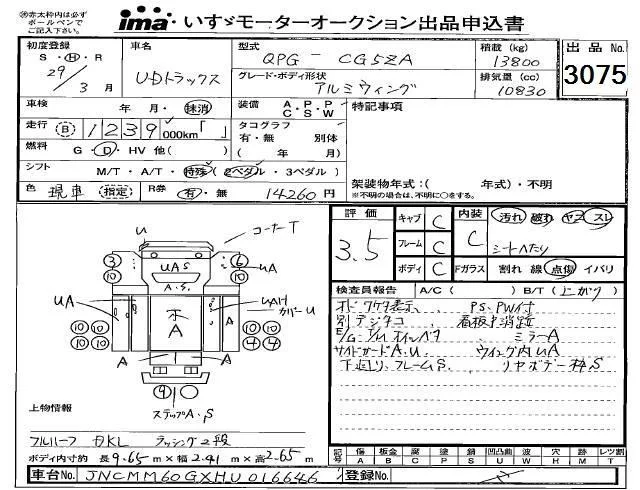 ㊟赤太枠内は必ず
ボールペンで
ご記入下さい。
ima いすゞモーターオークション出品申込書
初度登録 車名 型式 QPG - CG5ZA 積載 (kg) 13800 出品No
S・H・R 29/3月 UDトラックス グレード・ボディ形状 アルミウィング 排気量 (cc) 10830 3075
車検 年 月・抹消 装備 A・P・P C・S・W 特記事項
走行 B 1239 000km「 」 タコグラフ 有・無 別体
燃料 G・D・HV 他( ) ( 年 月)
シフト M/T・A/T・特殊(2ペダル・3ペダル)
架装物年式:( 年式)・不明
※不明の場合は、不明に○をする。
色 現車 指定 R券 有・無 14260円
評価 3.5 キャブ C 内装 C 汚れ 破れ ヤニ スレ
フレーム C シートへたり
ボディ C Fガラス 割れ 線 点傷 イバリ
U コーナーT
3 10 UAS A.S. 6 10 UA
UA UAH カバーU
木 A
10 10 10 10 10 10 4 4
A A
9
ステップA.S
検査員報告 A/C( ) B/T(上がり)
PS.PW付
別デジタコ 看板中消跡
ミラーA
サイドガードA.U ウイング内UA
下廻り.フレームS. リヤボデー枠S
上物情報
フルハーフ DKL ラッシング2段
ボディ内寸約 長9.65m×幅2.41m×高2.65m
記号 傷 板金 腐 塗 錆 凹凸曲 波 穴 跡 レツ割
A B C P S U W H M T
車台No. JNCMM60GXHU016646 登録No.